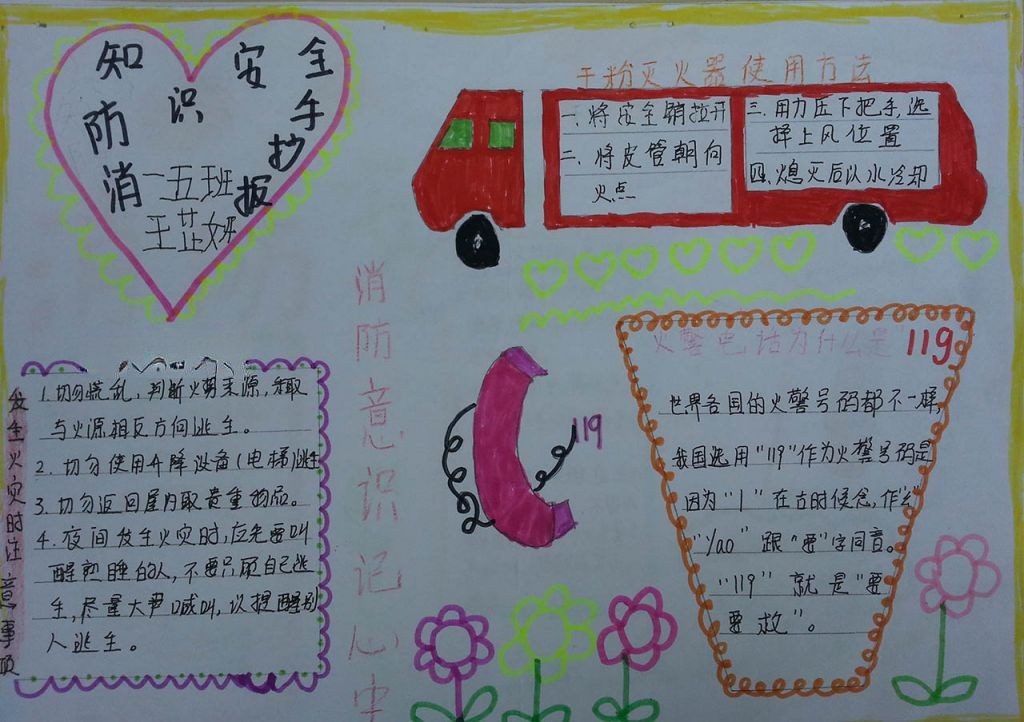 消防知识安全手抄报
一五班
王芷妍
干粉灭火器使用方法
一、将安全销拉开
二、将皮管朝向
火点
三、用力压下把手,选
择上风位置
四、熄灭后以水冷却
消防意识记心中
发生火灾时注意事项
1.切勿慌乱,判断火势来源,采取
与火源相反方向逃生。
2.切勿使用升降设备(电梯)逃生
3.切勿返回屋内取贵重物品。
4.夜间发生火灾时,应先要叫
醒熟睡的人,不要只顾自己逃
生,尽量大声喊叫,以提醒别
人逃生。
119
火警电话为什么是"119
世界各国的火警号码都不一样,
我国选用"119"作为火警号码是
因为"1"在古时候念,作"幺"
"yao"跟"要"字同音。
"119"就是"要
要救"。